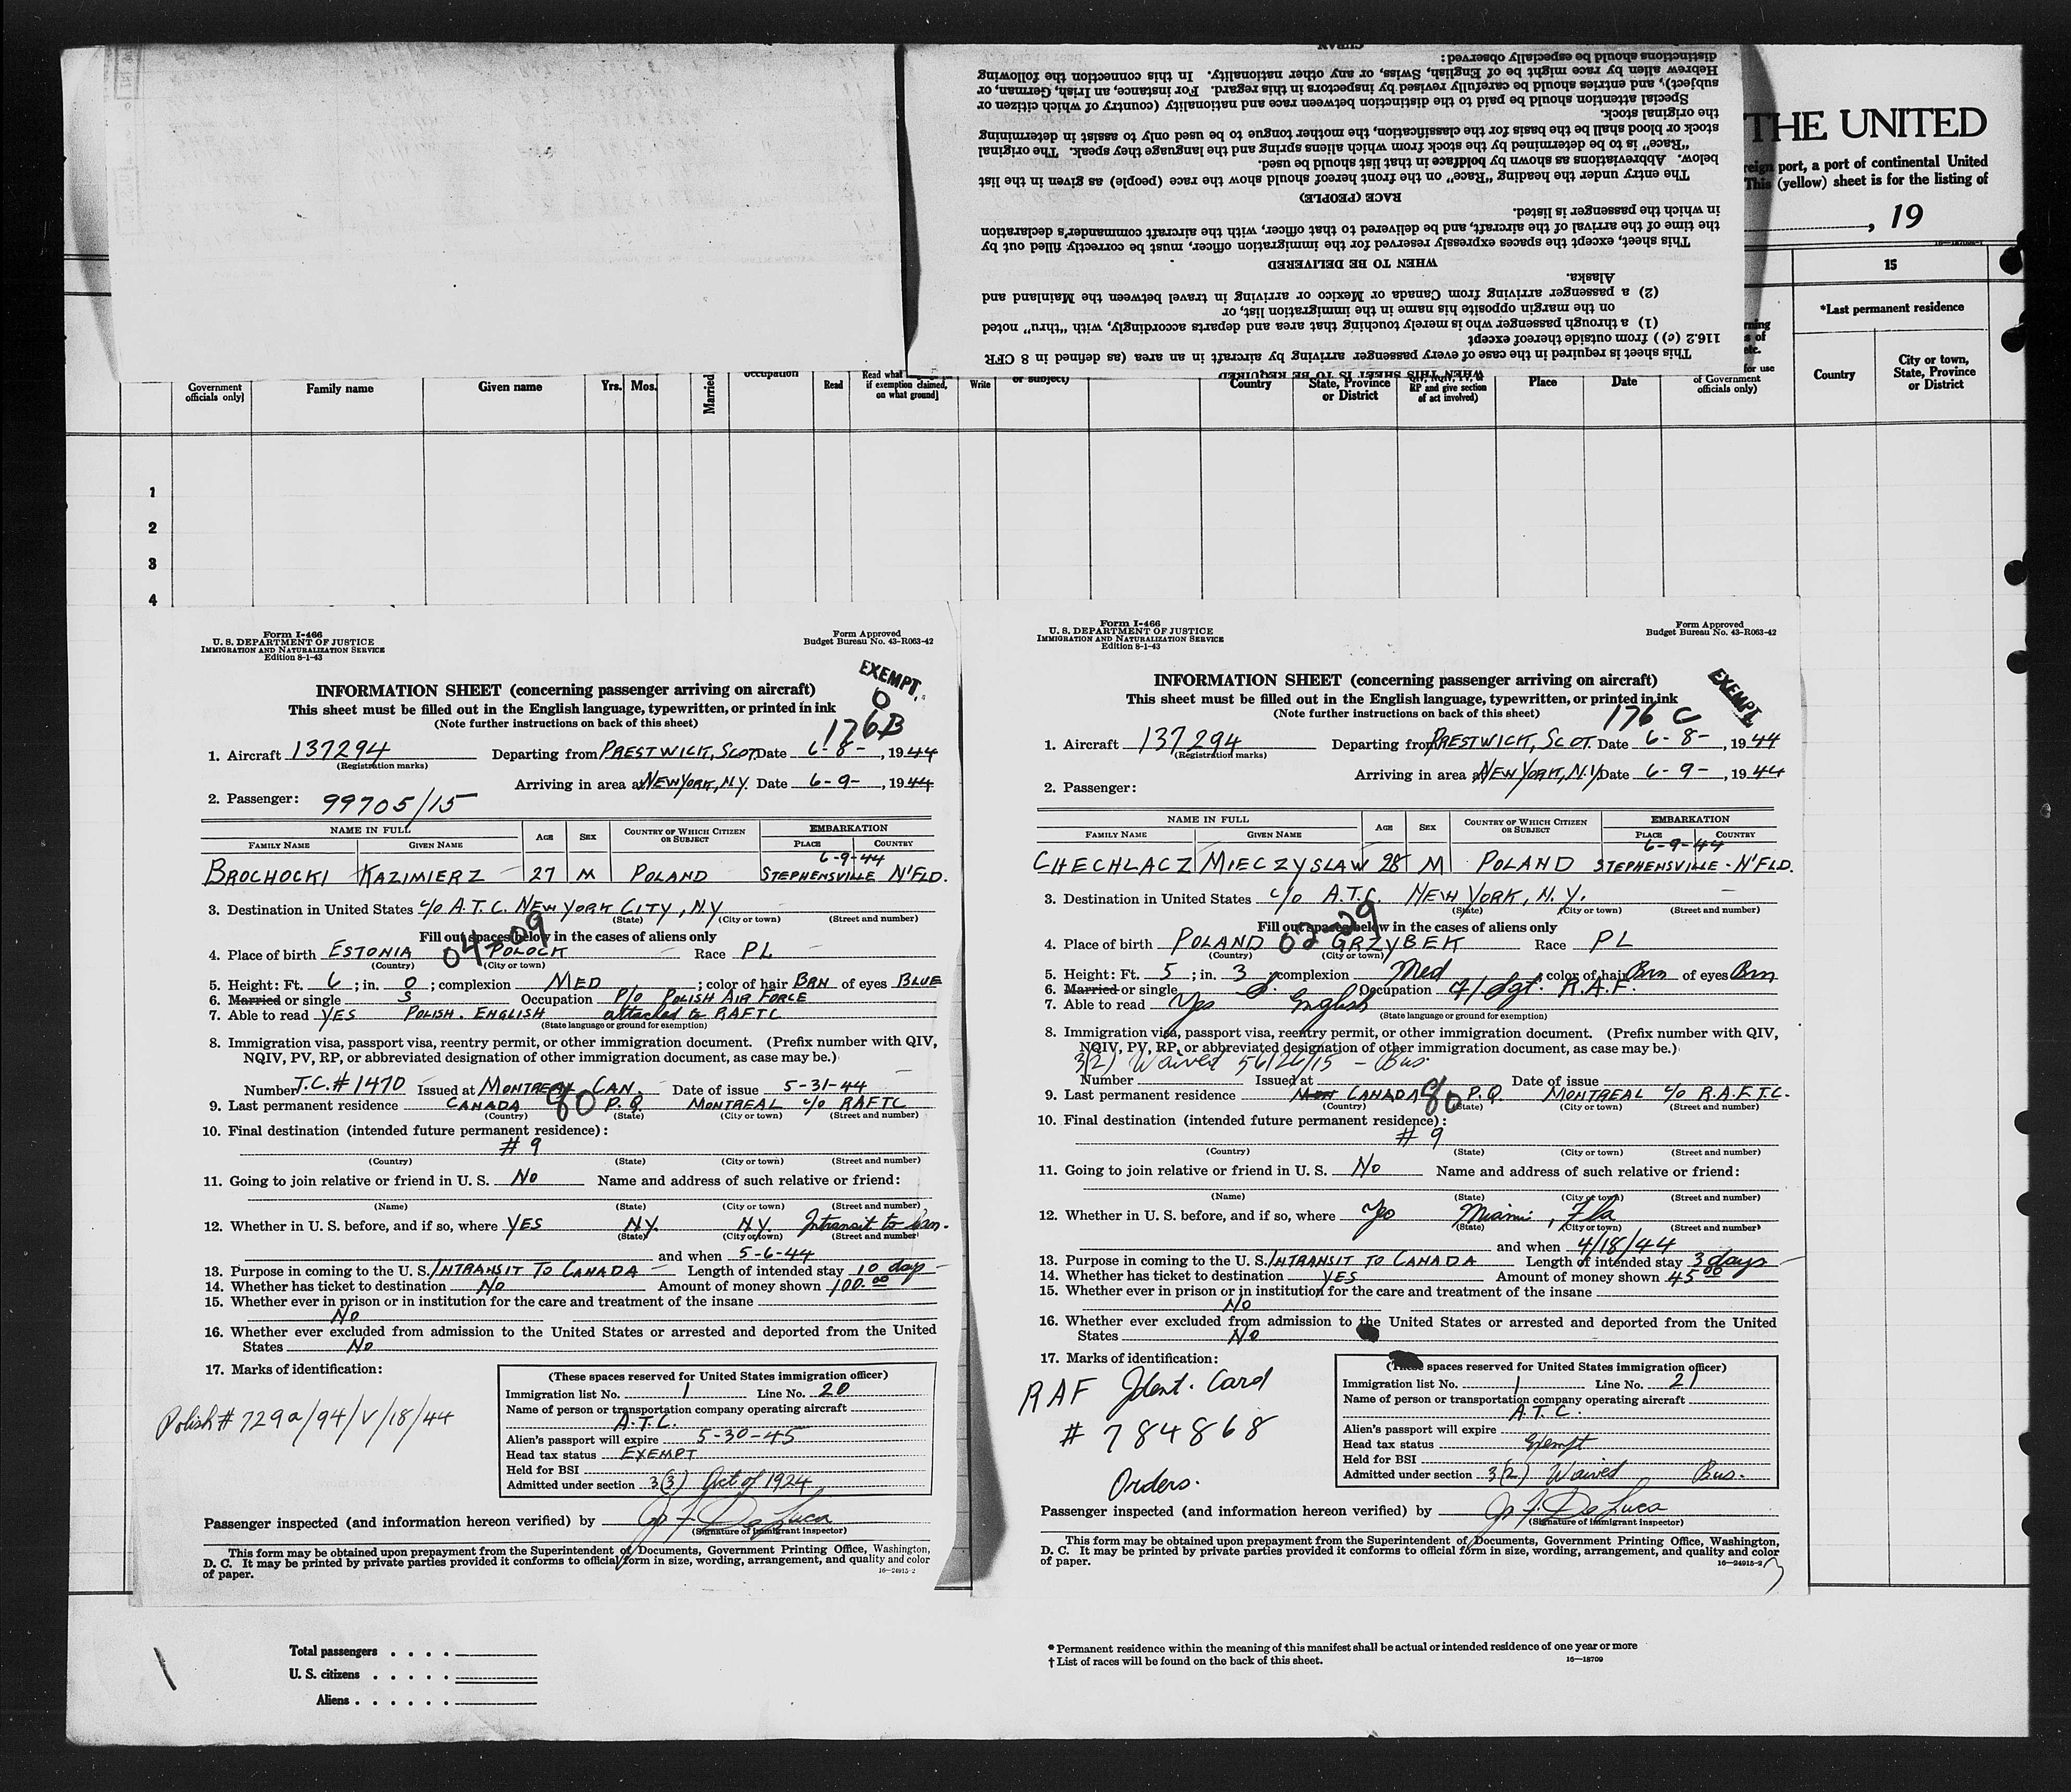 CUBAN
distinctions should be especially observed:
Hebrew alien by race might be of English, Swiss, or any other nationality. In this connection the following
subject), and entries should be carefully revised by inspectors in this regard. For instance, an Irish, German, or
Special attention should be paid to the distinction between race and nationality (country of which citizen or
the original stock.
stock or blood shall be the basis for the classification, the mother tongue to be used only to assist in determining
"Race" is to be determined by the stock from which aliens spring and the language they speak. The original
below. Abbreviations as shown by boldface in that list should be used.
The entry under the heading "Race" on the front hereof should show the race (people) as given in the list
RACE (PEOPLE)
in which the passenger is listed.
the time of the arrival of the aircraft, and be delivered to that officer, with the aircraft commander's declaration
This sheet, except the spaces expressly reserved for the immigration officer, must be correctly filled out by
WHEN TO BE DELIVERED
Alaska.
(2) a passenger arriving from Canada or Mexico or arriving in travel between the Mainland and
on the margin opposite his name in the immigration list, or
(1) a through passenger who is merely touching that area and departs accordingly, with "thru" noted
116.2 (c) ) from outside thereof except
This sheet is required in the case of every passenger arriving by aircraft in an area (as defined in 8 CFR
WHEN THIS SHEET IS TO BE REQUIRED
THE UNITED
reign port, a port of continental United
This (yellow) sheet is for the listing of
, 19
15
*Last permanent residence
Country
City or town,
State, Province
or District
Government
officials only]
Family name
Given name
Yrs.
Mos.
Married
occupation
Read
Read what
if exemption claimed,
on what ground]
Write
or subject)
Country
State, Province
or District
RP and give section
of act involved)
Place
Date
for use
of Government
officials only)
1
2
3
4
Form I-466
U. S. DEPARTMENT OF JUSTICE
IMMIGRATION AND NATURALIZATION SERVICE
Edition 8-1-43
Form Approved
Budget Bureau No. 43-R063-42
EXEMPT
0
INFORMATION SHEET (concerning passenger arriving on aircraft)
This sheet must be filled out in the English language, typewritten, or printed in ink
(Note further instructions on back of this sheet)
176B
1. Aircraft 137294 Departing from PRESTWICK, SCOT. Date 6-8-, 1944
(Registration marks)
Arriving in area at NEW YORK, N.Y. Date 6-9-, 1944
2. Passenger: 99705/15
NAME IN FULL AGE SEX COUNTRY OF WHICH CITIZEN OR SUBJECT EMBARKATION
FAMILY NAME GIVEN NAME PLACE COUNTRY
6-9-44
BROCHOCKI KAZIMIERZ 27 M POLAND STEPHENSVILLE N'FLD.
3. Destination in United States c/o A.T.C. NEW YORK CITY, NY
(State) (City or town) (Street and number)
Fill out spaces below in the cases of aliens only
04-09
4. Place of birth ESTONIA POLOCK Race PL
(Country) (City or town)
5. Height: Ft. 6; in. 0; complexion MED; color of hair BRN of eyes BLUE
6. Married or single S Occupation P/O POLISH AIR FORCE
7. Able to read YES POLISH. ENGLISH attached to RAFTC
(State language or ground for exemption)
8. Immigration visa, passport visa, reentry permit, or other immigration document. (Prefix number with QIV,
NQIV, PV, RP, or abbreviated designation of other immigration document, as case may be.)
Number T.C. # 1470 Issued at MONTREAL CAN. Date of issue 5-31-44
9. Last permanent residence CANADA 90 P.Q. MONTREAL c/o RAFTC
(Country) (State) (City or town) (Street and number)
10. Final destination (intended future permanent residence):
# 9
(Country) (State) (City or town) (Street and number)
11. Going to join relative or friend in U. S. NO Name and address of such relative or friend:
(Name) (State) (City or town) (Street and number)
12. Whether in U. S. before, and if so, where YES N.Y. N.Y. Intransit to Can.
(State) (City or town) (Street and number)
and when 5-6-44
13. Purpose in coming to the U. S. INTRANSIT TO CANADA Length of intended stay 10 days
14. Whether has ticket to destination NO Amount of money shown 100.00
15. Whether ever in prison or in institution for the care and treatment of the insane
NO
16. Whether ever excluded from admission to the United States or arrested and deported from the United
States NO
17. Marks of identification:
Polish # 729a/94/V/18/44
(These spaces reserved for United States immigration officer)
Immigration list No. 1 Line No. 20
Name of person or transportation company operating aircraft
A.T.C.
Alien's passport will expire 5-30-45
Head tax status EXEMPT
Held for BSI
Admitted under section 3(3) Act of 1924
Passenger inspected (and information hereon verified) by Jos F. De Luca
(Signature of immigrant inspector)
This form may be obtained upon prepayment from the Superintendent of Documents, Government Printing Office, Washington,
D. C. It may be printed by private parties provided it conforms to official form in size, wording, arrangement, and quality and color
of paper.
16—24915-2
Form I-466
U. S. DEPARTMENT OF JUSTICE
IMMIGRATION AND NATURALIZATION SERVICE
Edition 8-1-43
Form Approved
Budget Bureau No. 43-R063-42
EXEMPT
INFORMATION SHEET (concerning passenger arriving on aircraft)
This sheet must be filled out in the English language, typewritten, or printed in ink
(Note further instructions on back of this sheet)
176 C
1. Aircraft 137294 Departing from PRESTWICK, SCOT. Date 6-8-, 1944
(Registration marks)
Arriving in area at NEW YORK, N.Y. Date 6-9-, 1944
2. Passenger:
NAME IN FULL AGE SEX COUNTRY OF WHICH CITIZEN OR SUBJECT EMBARKATION
FAMILY NAME GIVEN NAME PLACE COUNTRY
6-9-44
CHECHLACZ MIECZYSLAW 28 M POLAND STEPHENSVILLE - N'FLD.
3. Destination in United States c/o A.T.C. NEW YORK, N.Y.
(State) (City or town) (Street and number)
Fill out spaces below in the cases of aliens only
02-29
4. Place of birth POLAND GRZYBEK Race PL
(Country) (City or town)
5. Height: Ft. 5; in. 3; complexion Med; color of hair Brn of eyes Brn
6. Married or single S. Occupation F/Sgt. R.A.F.
7. Able to read Yes English
(State language or ground for exemption)
8. Immigration visa, passport visa, reentry permit, or other immigration document. (Prefix number with QIV,
NQIV, PV, RP, or abbreviated designation of other immigration document, as case may be.)
3(2) Waived 56126/15 - Bus.
Number Issued at Date of issue
9. Last permanent residence CANADA 90 P.Q. MONTREAL c/o R.A.F.T.C.
(Country) (State) (City or town) (Street and number)
10. Final destination (intended future permanent residence):
# 9
(Country) (State) (City or town) (Street and number)
11. Going to join relative or friend in U. S. NO Name and address of such relative or friend:
(Name) (State) (City or town) (Street and number)
12. Whether in U. S. before, and if so, where Yes Miami, Fla
(State) (City or town) (Street and number)
and when 4/18/44
13. Purpose in coming to the U. S. INTRANSIT TO CANADA Length of intended stay 3 days
14. Whether has ticket to destination YES Amount of money shown 45.00
15. Whether ever in prison or in institution for the care and treatment of the insane
NO
16. Whether ever excluded from admission to the United States or arrested and deported from the United
States NO
17. Marks of identification:
RAF Ident. Card
# 784868
Orders.
(These spaces reserved for United States immigration officer)
Immigration list No. 1 Line No. 21
Name of person or transportation company operating aircraft
A.T.C.
Alien's passport will expire
Head tax status Exempt
Held for BSI
Admitted under section 3(2) Waived Bus.
Passenger inspected (and information hereon verified) by Jos F. De Luca
(Signature of immigrant inspector)
This form may be obtained upon prepayment from the Superintendent of Documents, Government Printing Office, Washington,
D. C. It may be printed by private parties provided it conforms to official form in size, wording, arrangement, and quality and color
of paper.
16—24915-2
Total passengers . . . .
U. S. citizens . . . . .
Aliens . . . . . .
* Permanent residence within the meaning of this manifest shall be actual or intended residence of one year or more
† List of races will be found on the back of this sheet.
16—18709